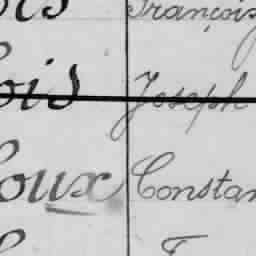 ois François
ois Joseph
oux Constan